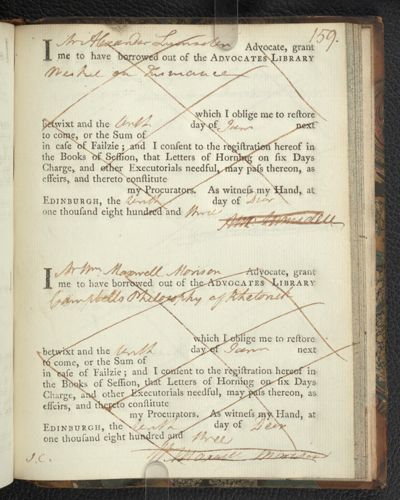 159.
I Mr Alexander Lumsden Advocate, grant
me to have borrowed out of the ADVOCATES LIBRARY
on
which I oblige me to reſtore
betwixt and the tenth day of next
to come, or the Sum of
in caſe of Failzie; and I conſent to the regiſtration hereof in
the Books of Seſſion, that Letters of Horning on ſix Days
Charge, and other Executorials needful, may paſs thereon, as
effeirs, and thereto conſtitute
my Procurators. As witneſs my Hand, at
EDINBURGH, the tenth day of Decr
one thouſand eight hundred and three
I Mr Wm Maxwell Morison Advocate, grant
me to have borrowed out of the ADVOCATES LIBRARY
Campbells Philosophy of Rhetorick
which I oblige me to reſtore
betwixt and the tenth day of next
to come, or the Sum of
in caſe of Failzie; and I conſent to the regiſtration hereof in
the Books of Seſſion, that Letters of Horning on ſix Days
Charge, and other Executorials needful, may paſs thereon, as
effeirs, and thereto conſtitute
my Procurators. As witneſs my Hand, at
EDINBURGH, the tenth day of Decr
one thouſand eight hundred and three
J.C. Wm Maxwell Morison